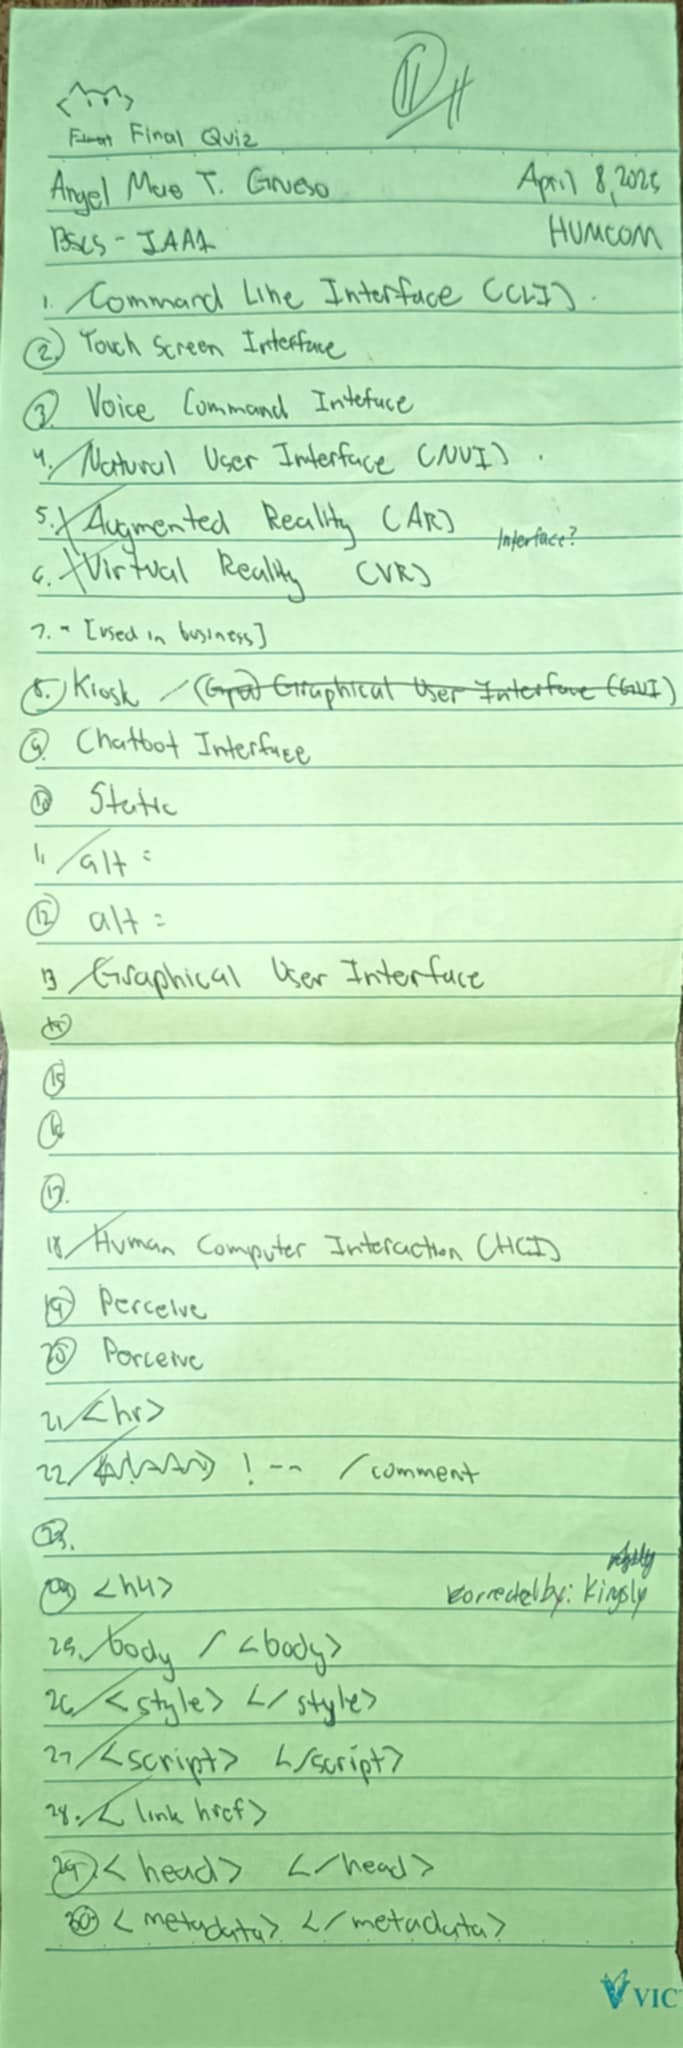 11
Final Quiz
Angel Mae T. Grueso April 8, 2025
BSCS - IAA1 HUMCOM
1. Command Line Interface (CLI).
2. Touch Screen Interface
3. Voice Command Inteface
4. Natural User Interface (NUI).
5. Augmented Reality (AR)
Interface?
6. Virtual Reality (VR)
7. - [used in business]
8. Kiosk / Graphical User Interface (GUI)
9. Chatbot Interface
10 Static
11 alt =
12 alt =
13 Graphical User Interface
14
15
16
17.
18 Human Computer Interaction (HCI)
19 Perceive
20 Perceive
21 <hr>
22 ! -- / comment
23.
24 <h4>
Korrected by: Kingsly
25. body / <body>
26 <style> </style>
27 <script> </script>
28. < link href>
29 <head> </head>
30 <metadata> </metadata>
VIC